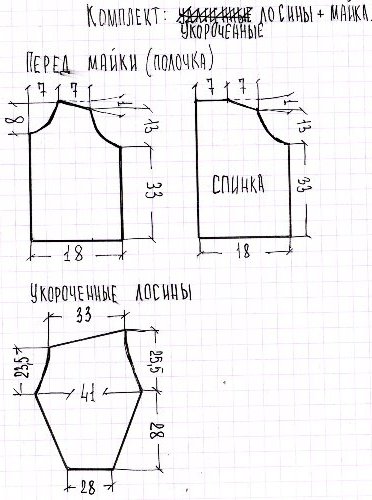 КОМПЛЕКТ: ЛОСИНЫ + МАЙКА.
УКОРОЧЕННЫЕ
ПЕРЕД МАЙКИ (ПОЛОЧКА)
7 7 1
8
13
33
18
7 7 1
13
СПИНКА
33
18
УКОРОЧЕННЫЕ ЛОСИНЫ
33
23,5
25,5
41
28
28